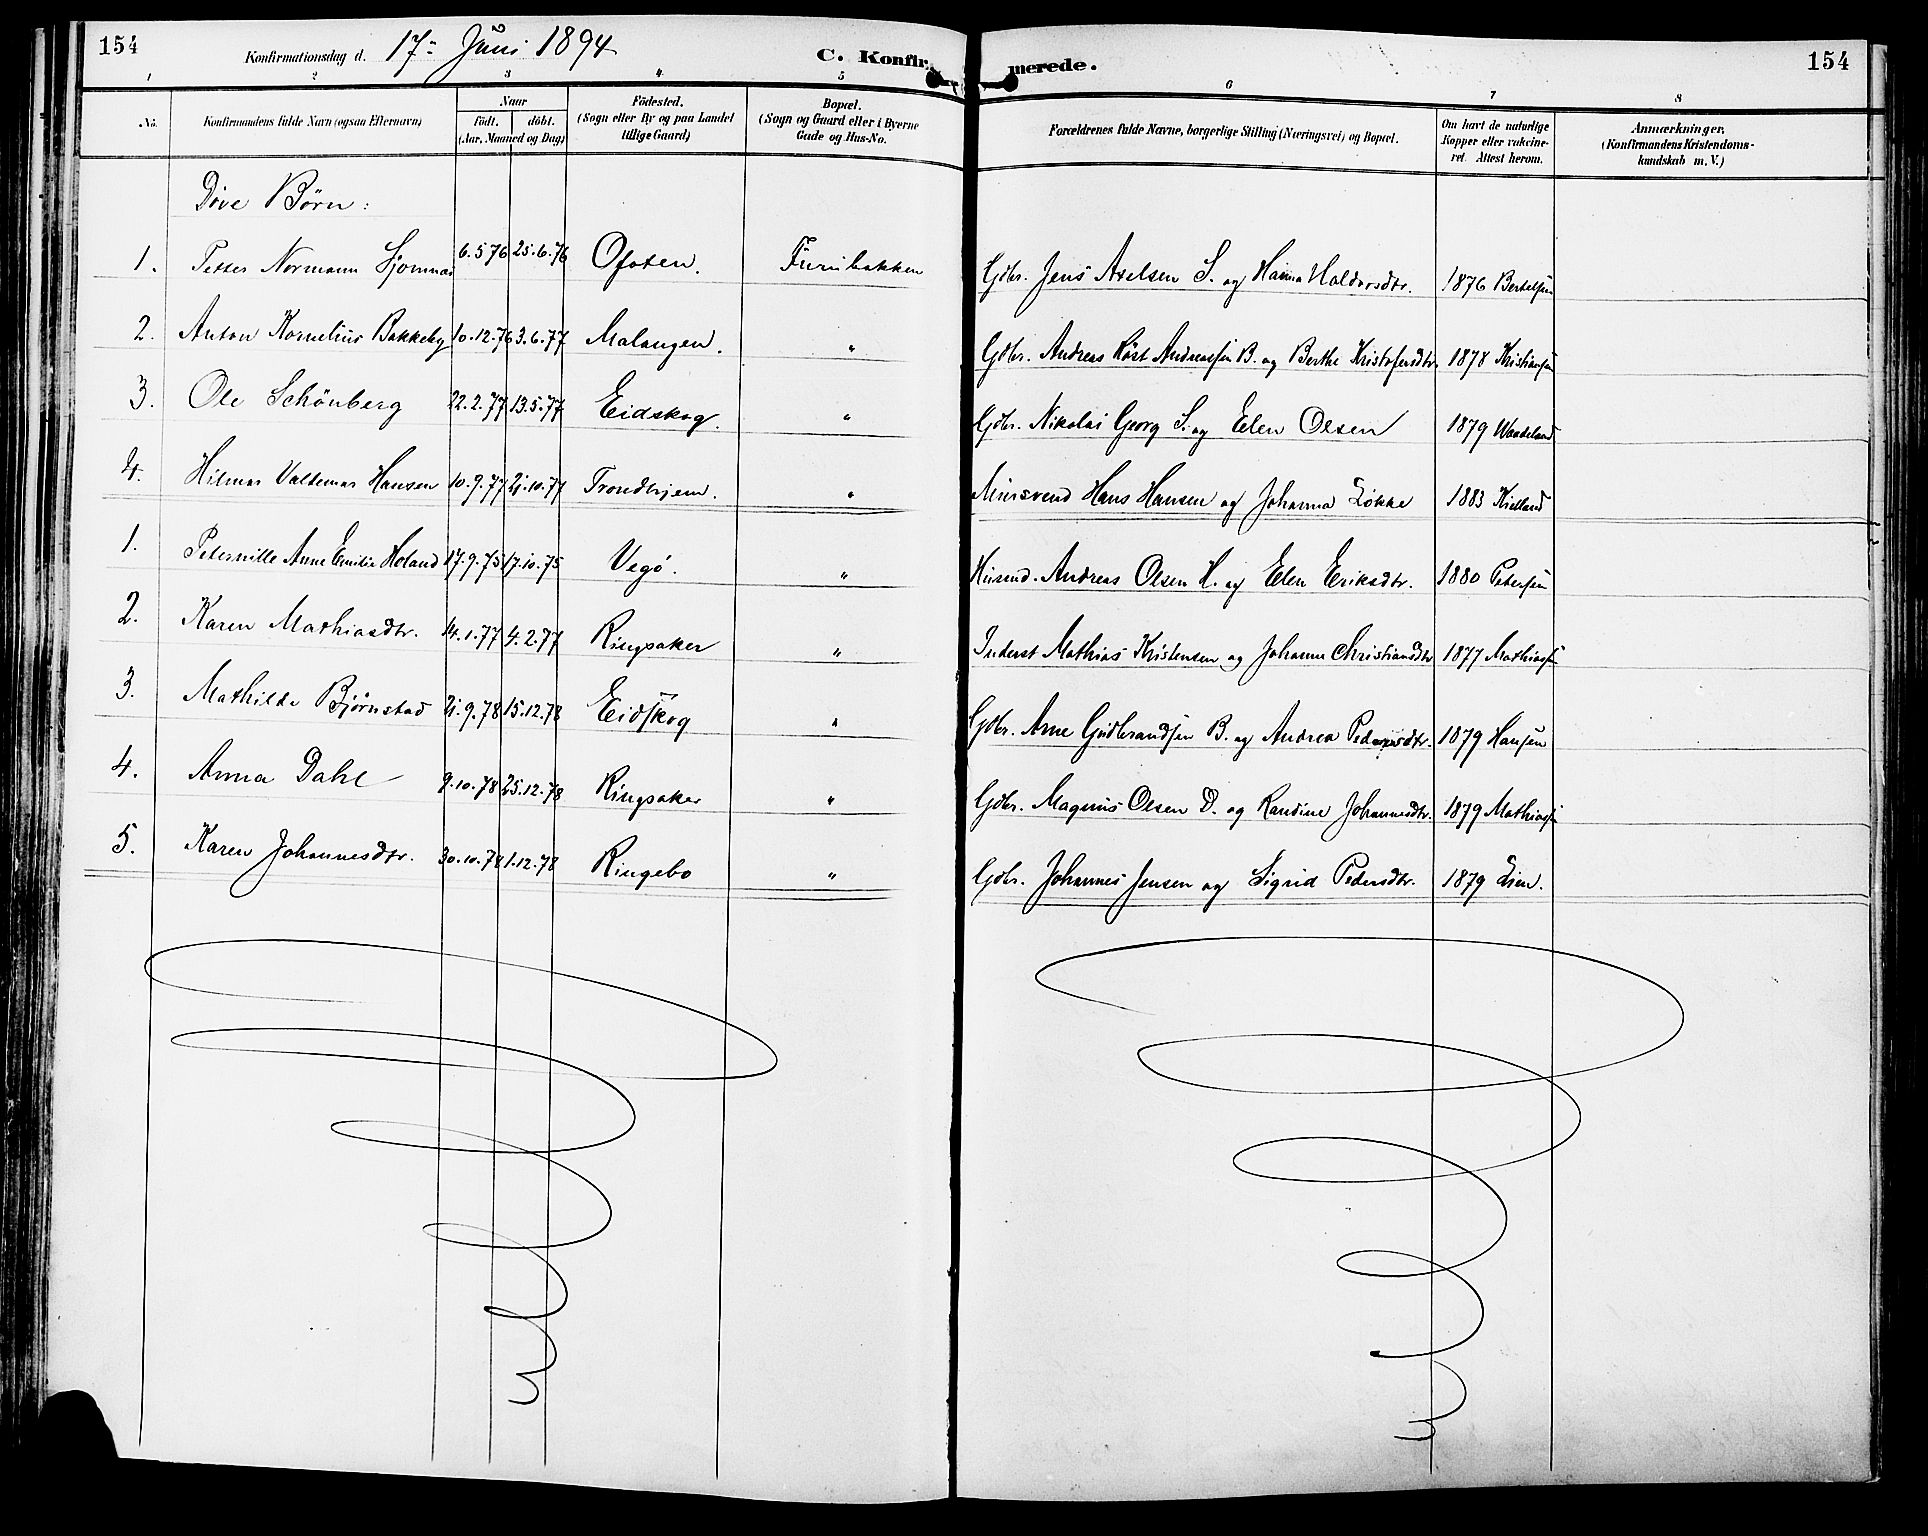 154
Konfirmationsdag d. 17. Juni 1894
C. Konfir-
merede.
154
1 2 3 4 5 6 7 8
No.
Konfirmandens fulde Navn (ogsaa Efternavn)
Naar
födt. döbt.
(Aar, Maaned og Dag)
Födested.
(Sogn eller By og paa Landet
tillige Gaard)
Bopæl.
(Sogn og Gaard eller i Byerne
Gade og Hus-No.
Forældrenes fulde Navne, borgerlige Stilling (Næringsvei) og Bopæl.
Om havt de naturlige
Kopper eller vakcine-
ret. Attest herom.
Anmærkninger.
(Konfirmandens Kristendoms-
kundskab m. V.)
Døve Børn:
1. Petter Normann Sjomnæs 6.5.76 25.6.76 Ofoten. Furubakken Gdbr. Jens Axelsen S. og Hanna Haldorsdtr. 1876 Bertelsen
2. Anton Kornelius Bakkeby 10.12.76 3.6.77 Malangen. " Gdbr. Andreas Røst Andreassen B. og Berthe Kristofersdtr. 1878 Kristiansen
3. Ole Schönberg 22.2.77 13.5.77 Eidskog. " Gdbr. Nikolai Georg S. og Elen Olsen 1879 Waadeland
4. Hilmar Valdemar Hansen 10.9.77 21.10.77 Trondhjem. " Mursvend Hans Hansen og Johanna Løkke 1883 Kielland
1. Peternille Anne Emilie Holand 17.9.75 17.10.75 Vegø. " Husmd. Andreas Olsen H. og Elen Eriksdtr. 1880 Petersen
2. Karen Mathiasdtr. 14.1.77 4.2.77 Ringsaker " Inderst Mathias Kristensen og Johanne Christiansdtr 1877 Mathiassen
3. Mathilde Bjørnstad 21.9.78 15.12.78 Eidskog " Gdbr. Arne Gudbrandsen B. og Andrea Pedersdtr. 1879 Hansen
4. Anna Dahl 9.10.78 25.12.78 Ringsaker " Gdbr. Magnus Olsen D. og Randine Johannesdtr. 1879 Mathiassen
5. Karen Johannesdtr. 30.10.78 1.12.78 Ringebo " Gdbr. Johannes Jensen og Sigrid Pedersdtr. 1879 Lien.